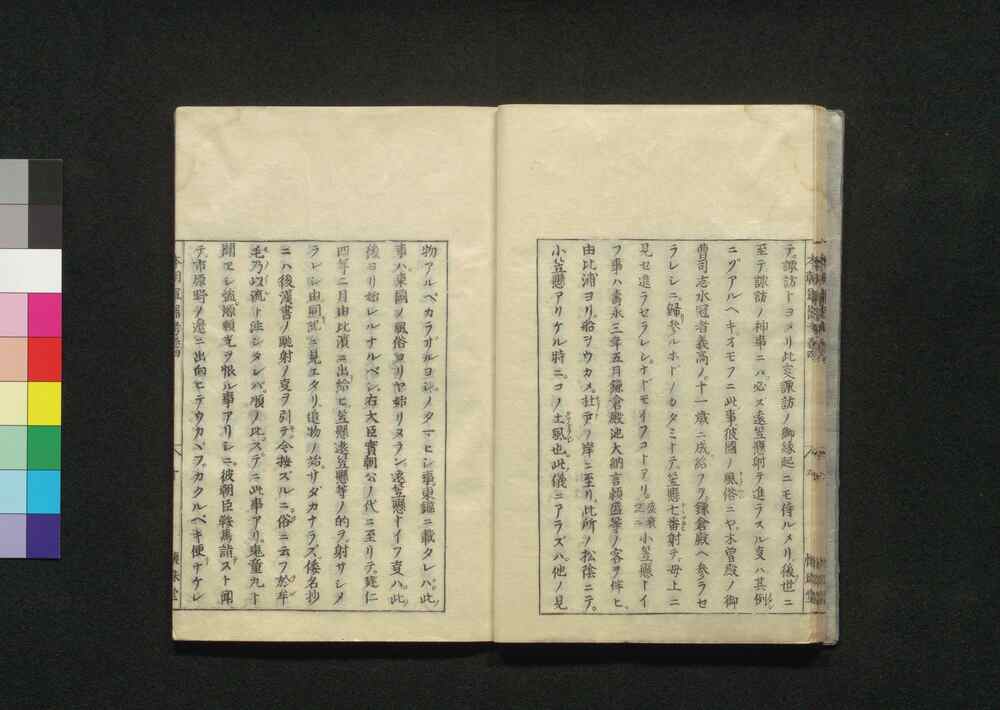 テ諏訪トヨメリ此支諏訪ノ御縁起ニモ侍ルメリ後世ニ
至テ諏訪ノ神事ニハ必ス遠笠懸射テ進ラスル支ハ其例
ニヅアルヘキズモフニ此事彼國ノ風俗ニヤ木曽殿ノ御
曹司志水冠者義高ノ十一歳ニ成給フヲ鎌倉殿ヘ参ラセ
ラレシニ歸参ルホドノカタミトテ笠懸七番射テ母上ニ
見セ進ラセラレシケドモイフコトアリ小笠懸トイ
フ事ハ壽永三年五月鎌倉殿池大納言頼盛等ノ客ヲ伴ヒ
由比浦ヨリ船ヲウカメ杜戸ノ岸ニ至リ此所ノ松陰ニテ
小笠懸アリケル時ニコノ土風也此儀ニアラズハ他ノ見
物アルベカラザルヨシノタマヒシ事東鑑ニ載タレバ此
事ハ東國ノ風俗ヨリヤ始リヌラン遠笠懸トイフ支ハ此
後ヨリ始レルナルベシ右大臣實朝公ノ代ニ至リテ建仁
四年二月由比濱ニ出給ヒ笠懸遠笠懸等ノ的ヲ射サシメ
ラレシ由同記ニ見エタリ追物ノ始サダカナラズ倭名抄
ニハ後漢書ノ馳射ノ支ヲ引テ今按ズルニ俗ニ云フ於牟
毛乃以流ト注シタレバ順ノ比スデニ此事アリ鬼童丸ト
聞エシ強盗頼光ヲ恨ル事アリシニ彼朝臣鞍馬詣スト聞
テ市原野ノ邊ニ出向ヒテウカヾフカクルベキ便ナケレ